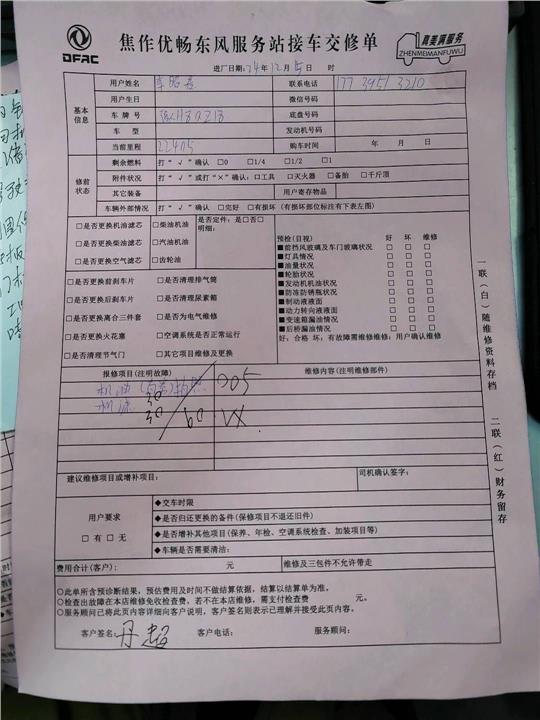 DFAC
焦作优畅东风服务站接车交修单
真美满服务
ZHENMEIMANFUWU
进厂日期:24年12月5日 时
基本信息
用户姓名 联系电话 177 3951 3210
用户生日 微信号码
车牌号 底盘号码
车型 发动机号码
当前里程 22405 购车时间 年 月 日
修前状态
剩余燃料 打“√”确认 □0 □1/4 □1/2 □1
附件状况 打“√”或打“×”确认:□工具 □灭火器 □备胎 □千斤顶
其它装备 用户寄存物品
车辆外部情况 打“√”确认 □完好 □有损坏 (有损坏部位标注有下表左图)
□是否更换机油滤芯 □柴油机油
□是否更换柴油滤芯 □汽油机油
□是否更换空气滤芯 □齿轮油
是否定件:是□否□
明细:
□是否更换前刹车片 □是否清理排气筒
□是否更换后刹车片 □是否清理尿素箱
□是否更换离合三件套 □是否为电气维修
□是否更换火花塞 □空调系统是否正常运行
□是否清理节气门 □其它项目维修及更换
预检(目视) 好 坏 维修
■前挡风玻璃及车门玻璃状况 □ □ □
■灯具情况 □ □ □
■油量状况 □ □ □
■轮胎状况 □ □ □
■发动机机油状况 □ □ □
■防冻防锈瓶状况 □ □ □
■制动液液面 □ □ □
■动力转向液液面 □ □ □
■变速箱漏油情况 □ □ □
■后桥漏油情况 □ □ □
好:合格 坏:有故障需维修维修:用户确认维修
报修项目(注明故障) 维修内容(注明维修部件)
机油
005
机滤
30 30 60
VX
建议维修项目或增补项目: 司机确认签字:
用户要求
□有□无
◆交车时限
◆是否归还更换的备件(保修项目不退还旧件)
◆是否增补其他项目(保养、年检、空调系统检查、加装项目等)
◆车辆是否需要清洁:
费用合计(客户): 元 维修及三包件不允许带走
○此单所含预诊断结果,预估费用及时间不做结算依据,结算以结算单为准。
○检查出故障在本店维修免收检查费,若不在本店维修,需支付检查费 元。
○服务顾问已将此页内容详细向客户说明,客户签名则表示已理解并接受此页内容。
客户签名: 客户电话: 服务顾问:
一联(白)随维修资料存档
二联(红)财务留存